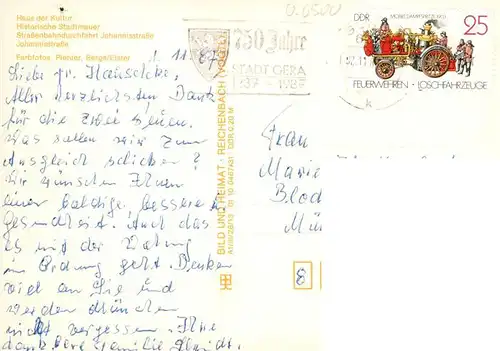 Haus der Kultur
Historische Stadtmauer
Straßenbahndurchfahrt Johannisstraße
Johannisstraße
Farbfotos
1.11.87
Liebe Fr.
Aller herzlichsten Dank
für die zwei neuen.
Was sollen wir zum
Ausgleich schicken?
Wir wünschen Ihnen
einer baldige, bessere
Gesundheit. Auch das
es mit der
in Ordnung geht. Denken
viel an Sie und
werden München
nicht vergessen. Ihre
dankbare Familie
BILD UND HEIMAT · REICHENBACH (VOGTL)
750 Jahre
STADT GERA
1237 - 1987
DDR
25
FEUERWEHREN - LÖSCHFAHRZEUGE
Frau
Marie
Blod
Mü